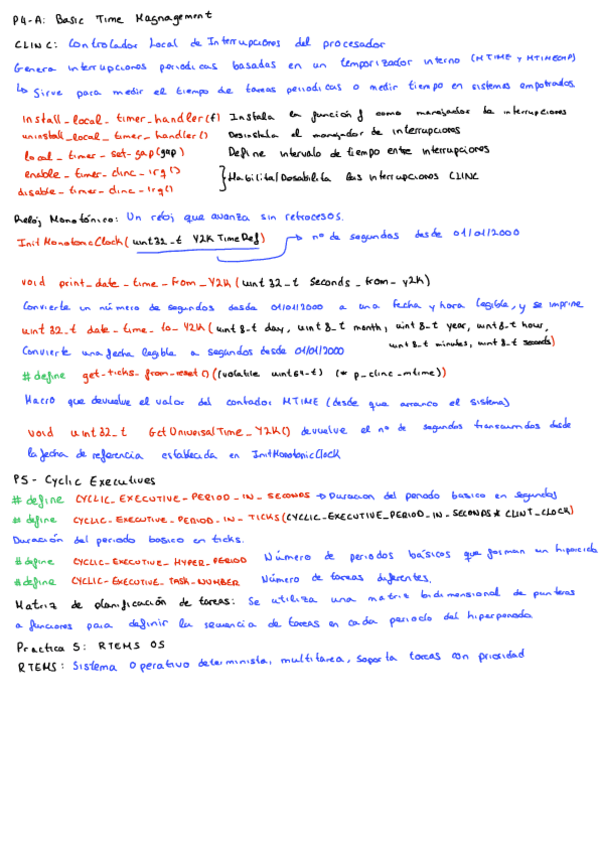 P4-A: Basic Time Magnagement
CLINC: Controlador Local de Interrupciones del procesador
Genera interrupciones periodicas basadas en un temporizador interno (MTIME y MTIMECMP)
↳ Sirve para medir el tiempo de tareas periodicas o medir tiempo en sistemas empotrados.
install_local_timer_handler(f) Instala la función f como manejador de interrupciones
uninstall_local_timer_handler() Desinstala el manejador de interrupciones
local_timer_set_gap(gap) Define intervalo de tiempo entre interrupciones
enable_timer_clinc_irq()
disable_timer_clinc_irq() } Habilita/Desabilita las interrupciones CLINC
Reloj Monotónico: Un reloj que avanza sin retrocesos.
InitMonotonicClock(uint32_t Y2KTimeRef) → nº de segundos desde 01/01/2000
void print_date_time_from_Y2K(uint32_t seconds_from_y2k)
Convierte un número de segundos desde 01/01/2000 a una fecha y hora legible, y se imprime
uint32_t date_time_to_Y2K(uint8_t day, uint8_t month, uint8_t year, uint8_t hour,
uint8_t minutes, uint8_t seconds)
Convierte una fecha legible a segundos desde 01/01/2000
#define get_ticks_from_reset()((volatile uint64_t) (*p_clinc_mtime))
Macro que devuelve el valor del contador MTIME (desde que arranco el sistema)
void uint32_t GetUniversalTime_Y2K() devuelve el nº de segundos transcurridos desde
la fecha de referencia establecida en InitMonotonicClock
P5- Cyclic Executives
#define CYCLIC_EXECUTIVE_PERIOD_IN_SECONDS → Duracion del periodo basico en segundos
#define CYCLIC_EXECUTIVE_PERIOD_IN_TICKS(CYCLIC_EXECUTIVE_PERIOD_IN_SECONDS*CLINT_CLOCK)
Duración del periodo basico en ticks.
#define CYCLIC_EXECUTIVE_HYPER_PERIOD Número de periodos básicos que forman un
#define CYCLIC_EXECUTIVE_TASK_NUMBER Número de tareas diferentes.
Matriz de planificación de tareas: Se utiliza una matriz bidimensional de punteros
a funciones para definir la secuencia de tareas en cada periodo del hiperperiodo
Practica 5: RTEMS OS
RTEMS: Sistema Operativo determinista, multitarea, soporta tareas con prioridad